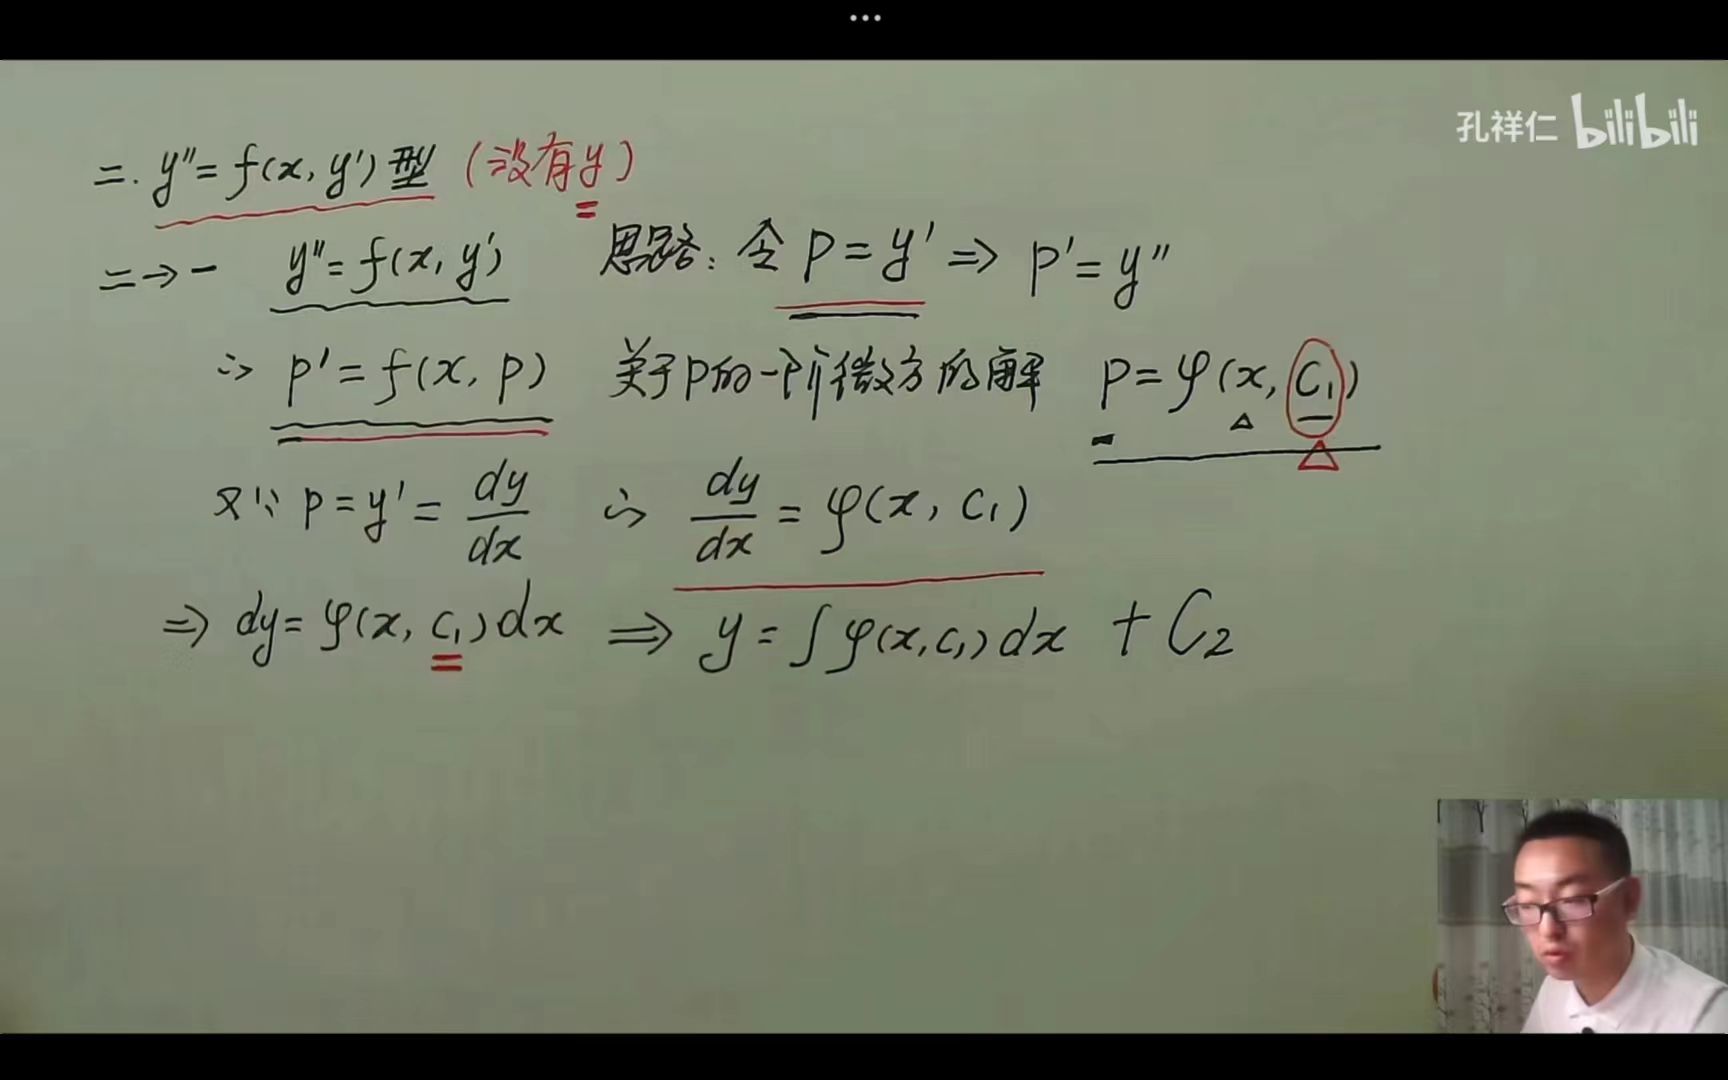 孔祥仁 bilibili
二. y''=f(x, y')型 (没有y)
二→一 y''=f(x, y') 思路: 令 p=y' ⇒ p'=y''
∴ p'=f(x, p) 关于p的一阶微方的解 p=φ(x, C₁)
又∵ p=y'=dy/dx ∴ dy/dx=φ(x, C₁)
⇒ dy=φ(x, C₁)dx ⇒ y=∫φ(x,C₁)dx + C₂